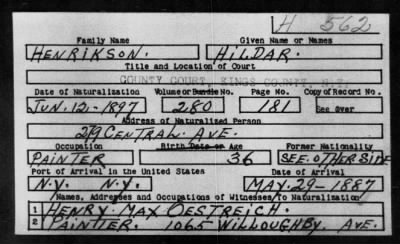 H 562
Family Name Given Name or Names
HENRIKSON. HILDAR.
Title and Location of Court
COUNTY COURT, KINGS COUNTY, N.Y.
Date of Naturalization Volume or Bundle No. Page No. Copy of Record No.
JUN. 12, -1897 280 181 See Over
Address of Naturalized Person
29 CENTRAL. AVE.
Occupation Birth Date or Age Former Nationality
PAINTER 36 SEE. OTHER SIDE
Port of Arrival in the United States Date of Arrival
N.Y. N.Y. MAY. 29-1887
Names, Addresses and Occupations of Witnesses to Naturalization
1 HENRY. MAX OESTREICH.
2 PAINTER. 1065 WILLOUGHBY. AVE.